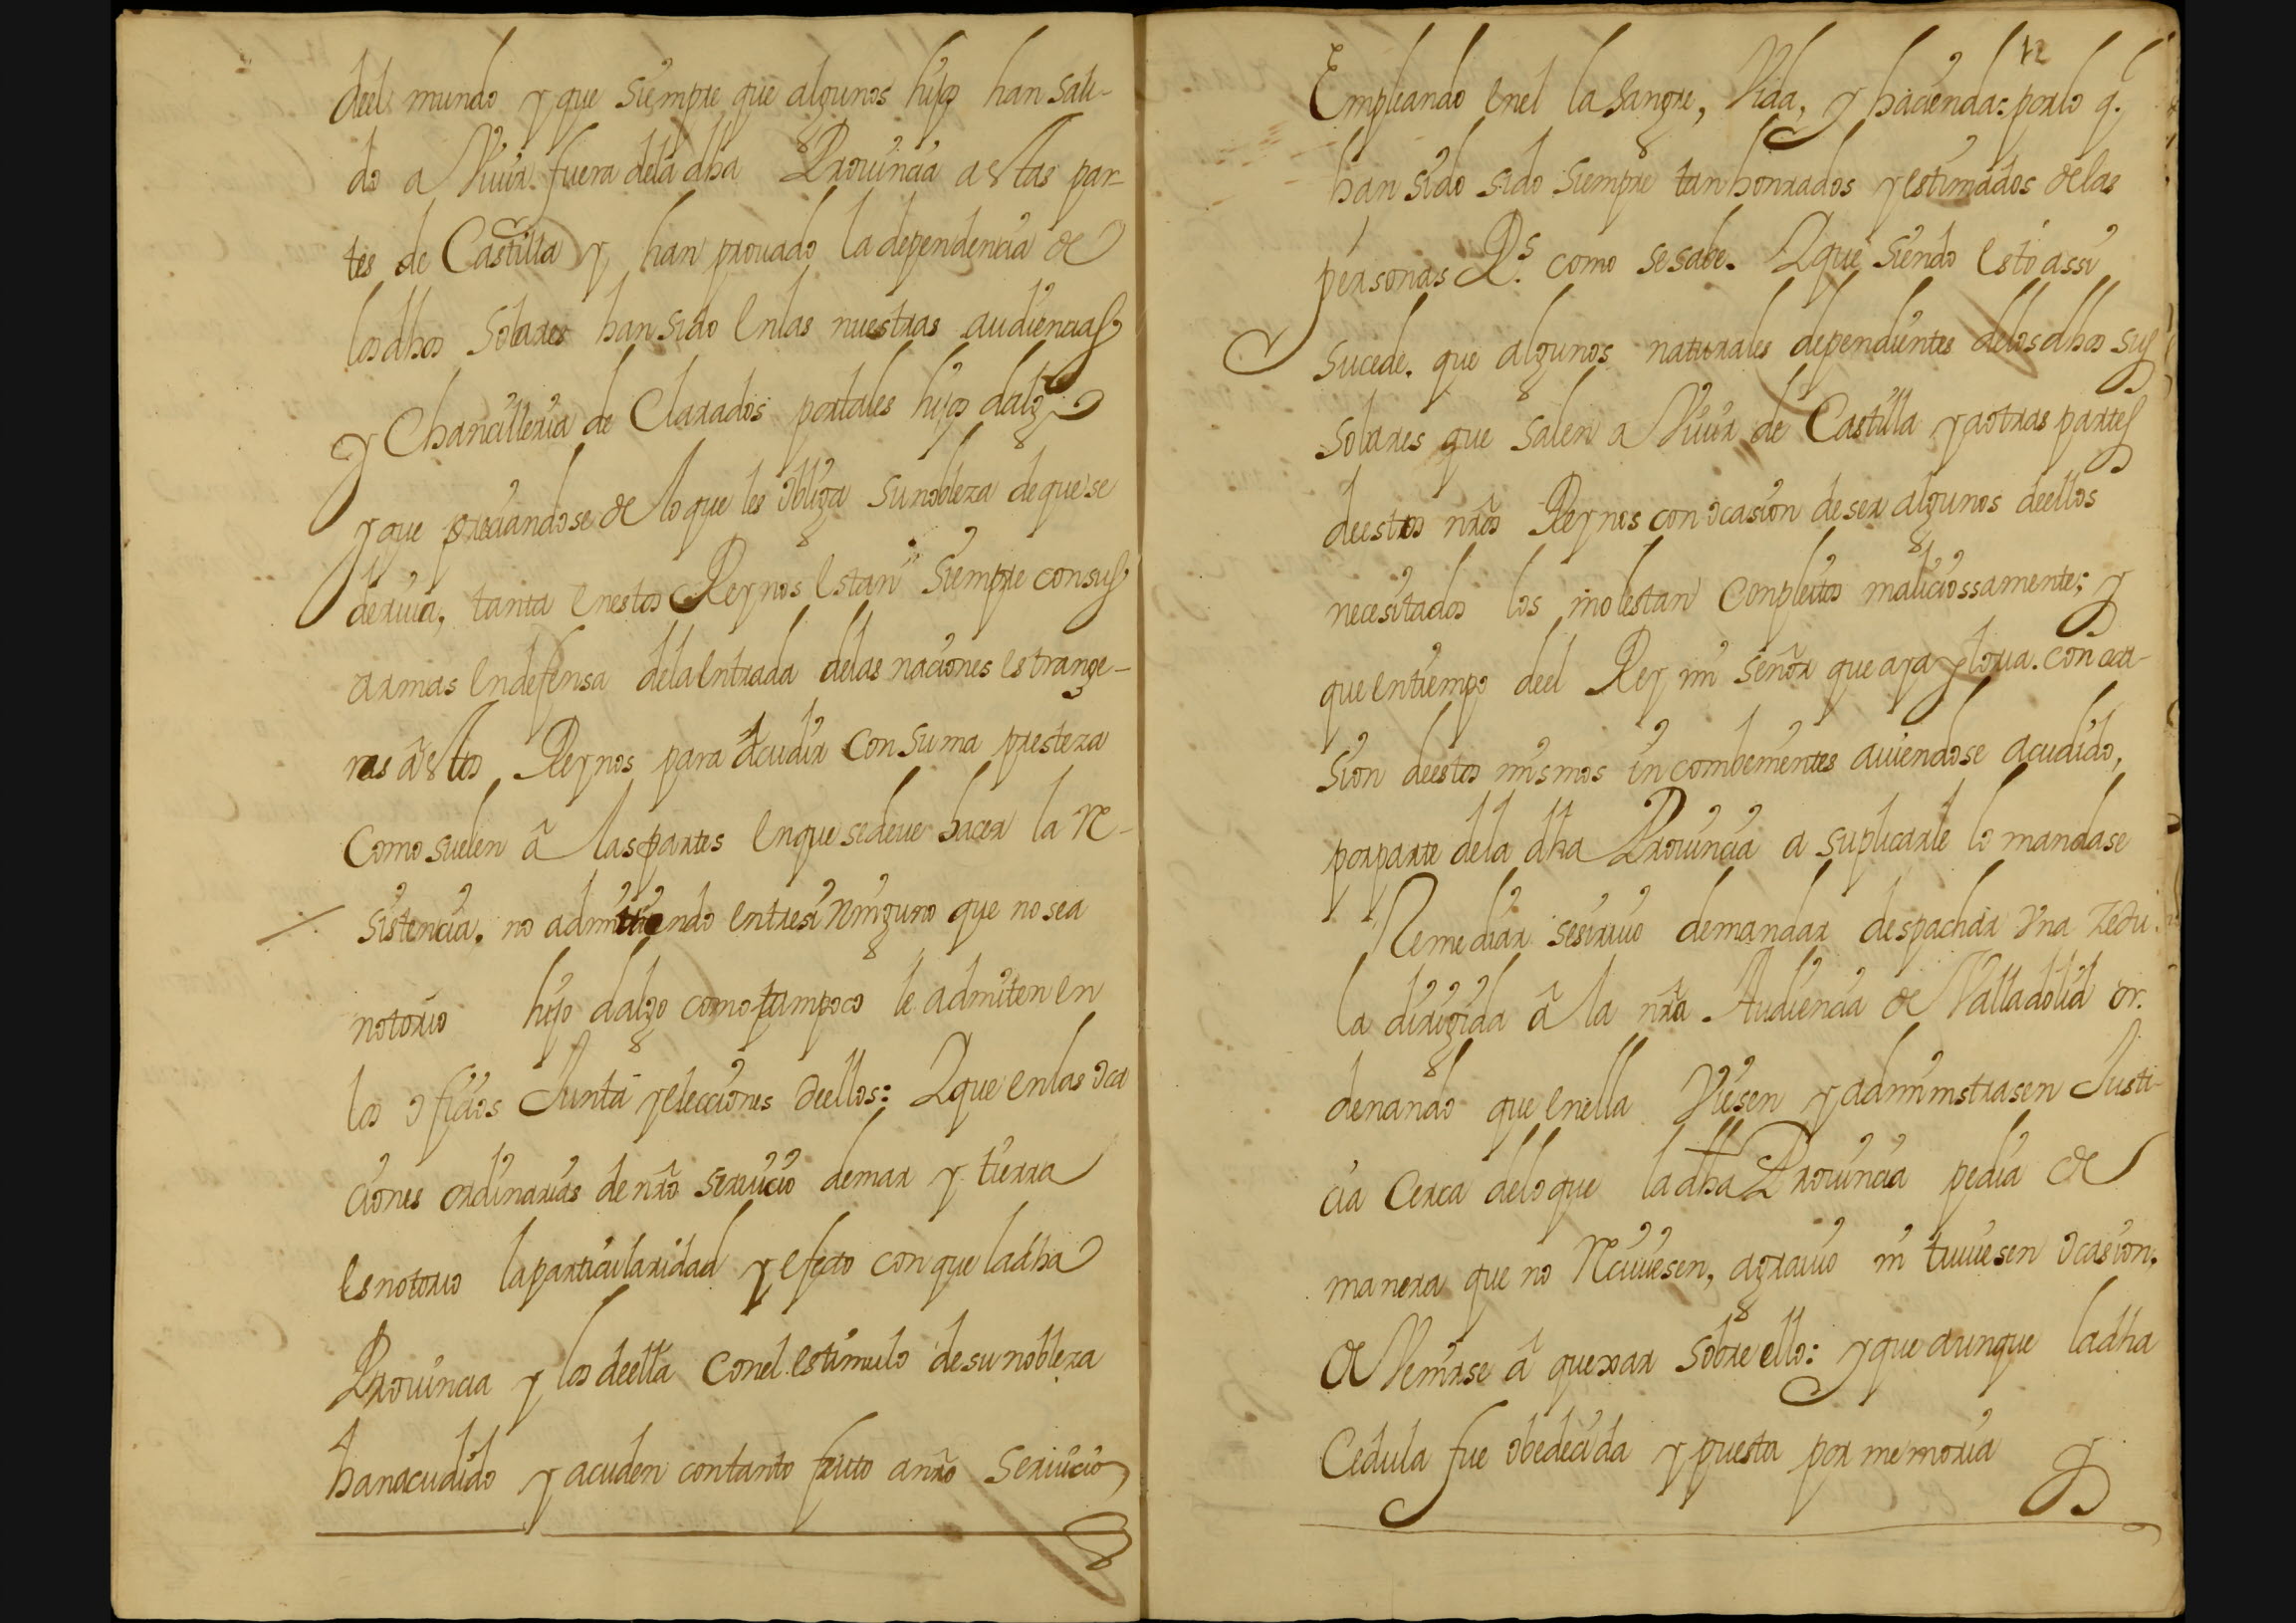 deel mundo y que siempre que algunos hijos han sali-
do a Viuir fuera dela dha Prouincia a estas par-
tes de Castilla y han prouado la dependencia de
los dhos solares han sido en las nuestras audiencias
y Chancilleria de Clarados por tales hijos dalgo
y que preciandose de lo que les obliga su nobleza de que se
deriua, tanta en estos Reynos estan siempre con sus
armas en defensa dela entrada delas naciones estrange-
ras à estos Reynos para acudir con suma presteza
Como suelen â las partes en que se deue hacer la re-
sistencia, no admitiendo entresi ninguno que no sea
notorio hijo dalgo como tampoco le admiten en
los oficios Junta y elecciones deellos: Y que en las oca
ciones ordinarias de nrõ seruicio de mar y tierra
es notorio la particularidad y efecto con que la dha
Prouincia y los deella con el estimulo de su nobleza
han acudido y acuden con tanto fruto a nrõ seruicio
12
Empleando en el la sangre, Vida, y hacienda: por lo q.
han sido sido siempre tan honrados y estimados de las
personas Rs. como se sabe. Y que siendo esto assi
sucede. que algunos naturales dependientes delos dhos sus
solares que salen a Viuir de Castilla y a otras partes
deestos nrõs Reynos con ocasion de ser algunos deellos
necesitados los molestan con pleitos maliciossamente; y
que en tiempo deel Rey mi señor que aya gloria. con oca-
sion deestos mismos incombenientes auiendose acudido,
por parte dela dha Prouincia a suplicarle lo mandase
Remediar se siruio de mandar despachar vna Zedu
la dirigida â la nrã Audiencia de Valladolid or.
denando que en ella Viesen y administrasen Justi-
cia cerca delo que la dha Prouincia pedia de
manera que no reciuiesen, agrauio ni tuuiesen ocasion,
de Venirse â quexar sobre ello: y que aunque la dha
Cedula fue obedecida y puesta por memoria